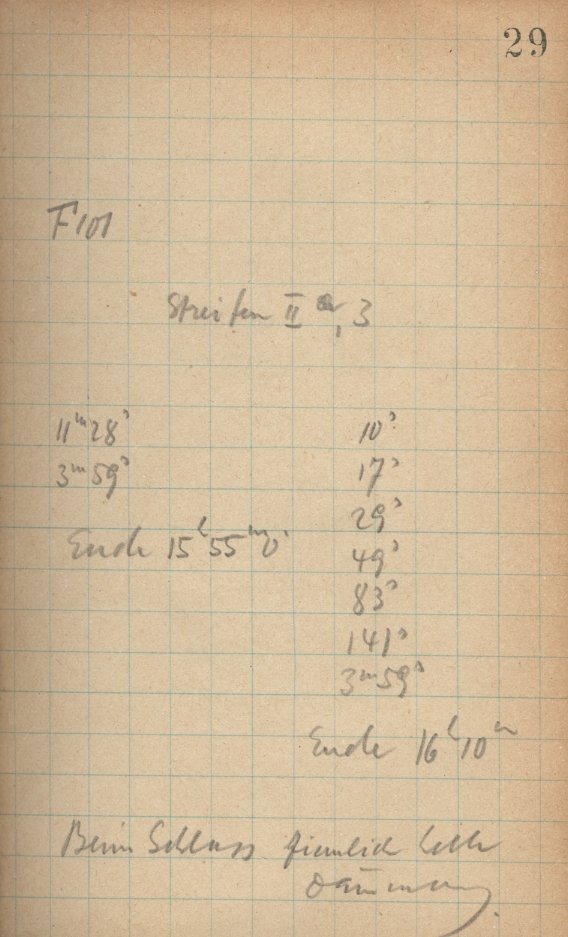 29
F101
Streifen II a, 3
11ᵐ28ˢ
3ᵐ59ˢ
Ende 15ʰ55ᵐ0ˢ
10ˢ
17ˢ
29ˢ
49ˢ
83ˢ
141ˢ
3ᵐ59ˢ
Ende 16ʰ10ᵐ
Beim Schluss ziemlich helle
Dämmerung.